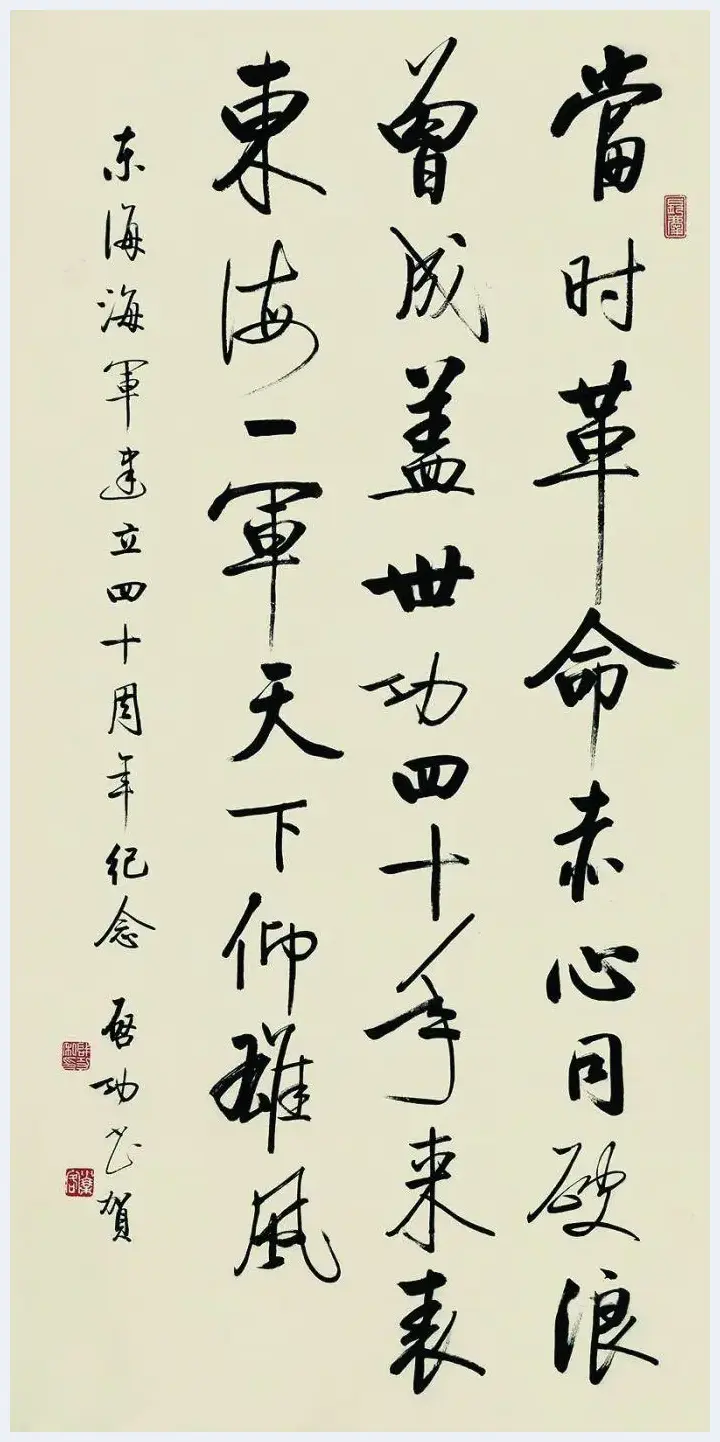 當时革命赤心同破浪
曾成盖世功四十年来表
東海一軍天下仰雄風
东海海軍建立四十周年纪念 啓功书賀